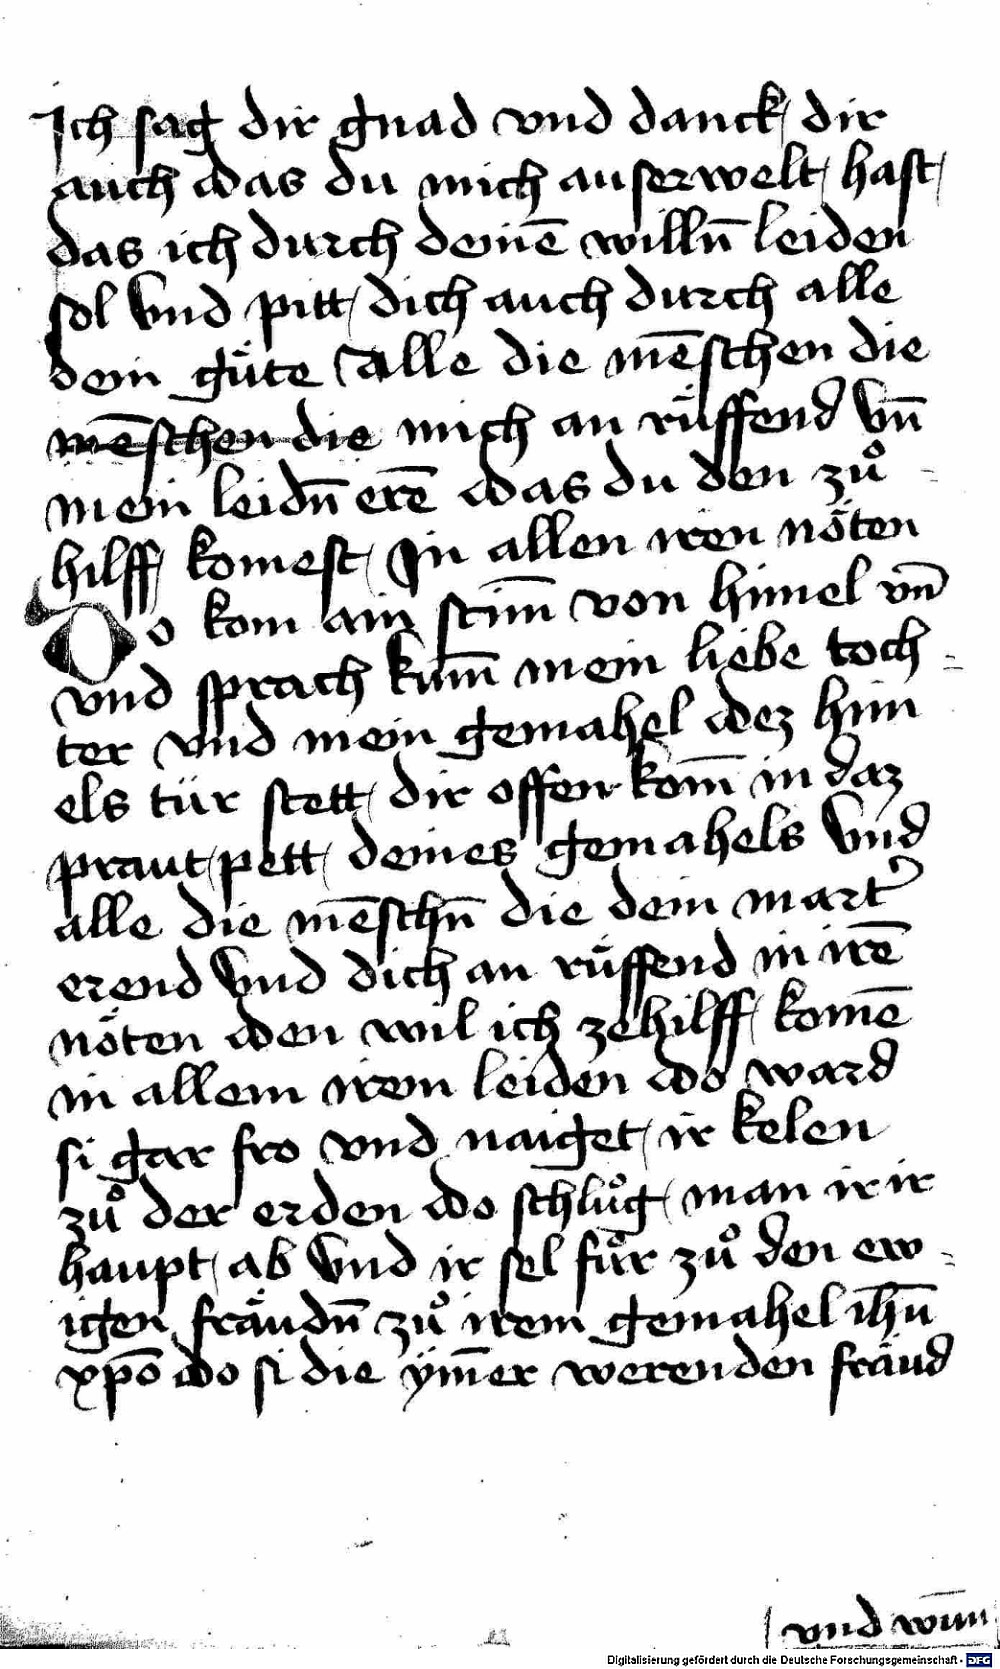 Ich sag dir gnad vnd danck dir
auch das du mich auserwelt hast
das ich durch deinē willn̄ leiden
sol Vnd pitt dich auch durch alle
dein gu̎te Alle die mēschen die
mēschen die mich an ru̎ffend Vn̄
mein leidn̄ erē das du den zů
hilff komest In allen iren nöten
Do kom ain stim̄ von himel vn̄
vnd sprach kum̄ mein liebe toch=
ter vnd mein gemahel dez him
els tür stett dir offen kom̄ in daz
praut pett deines gemahels Vnd
alle die mēschn̄ die dein mart᾽
erend Vnd dich an ru̎ffend in irē
nöten den wil ich ze hilff komē
in allem irem leiden do ward
si gar fro vnd naiget ir kelen
zů der erden do schlůg man ir ir
haupt ab Vnd ir sel fůr zů den ew=
igen fräudn̄ zů irem gemahel ihū
xp̄o do si die ym̄er werenden fräud
vnd wun̄
Digitalisierung gefördert durch die Deutsche Forschungsgemeinschaft - DFG